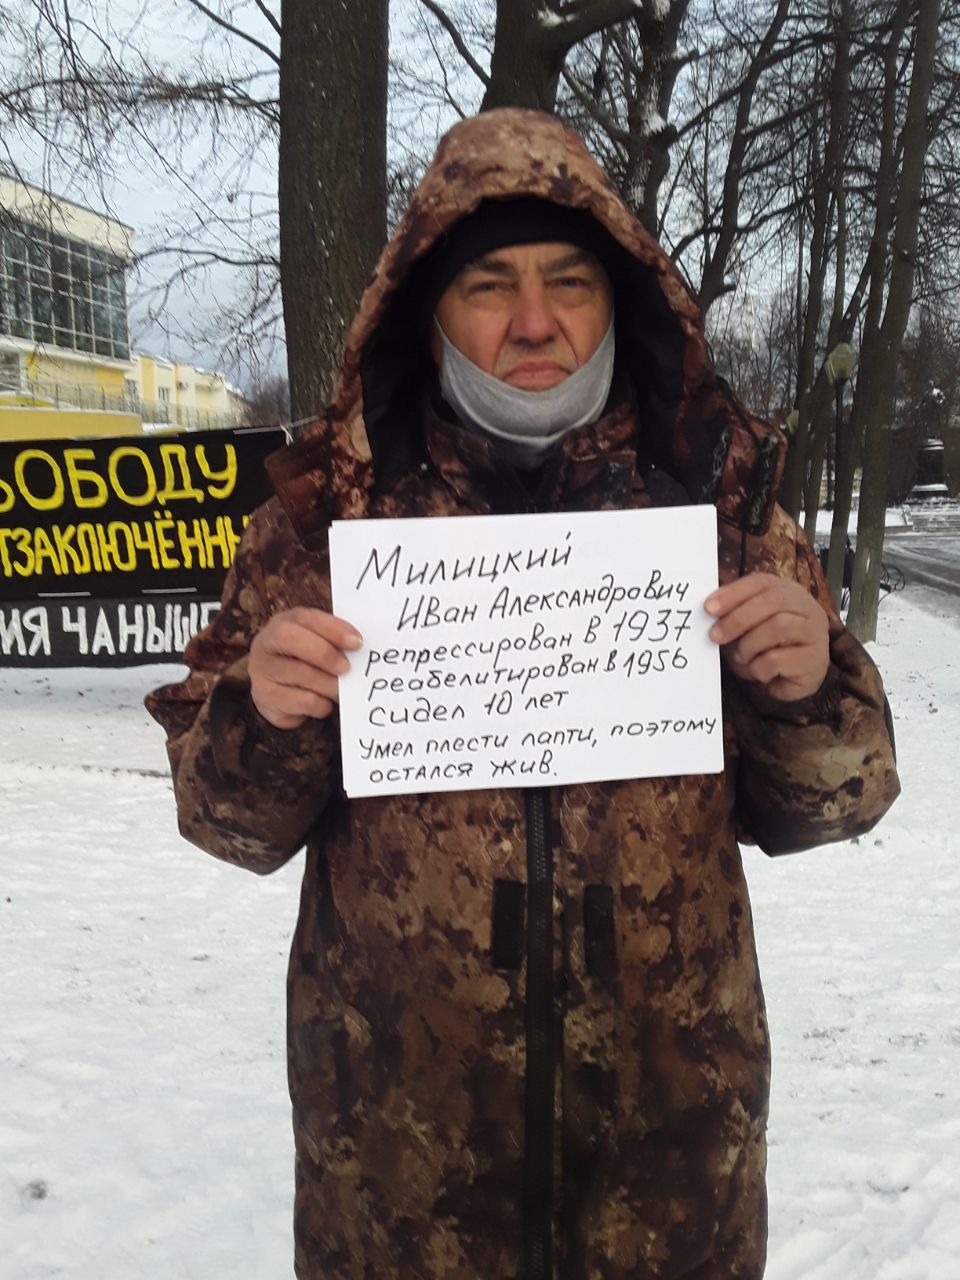 ВОБОДУ
ТЗАКЛЮЧЁНН
ИЯ ЧАНЫШЕ
Милицкий
Иван Александрович
репрессирован в 1937
реабелитирован в 1956
сидел 10 лет
Умел плести лапти, поэтому
остался жив.